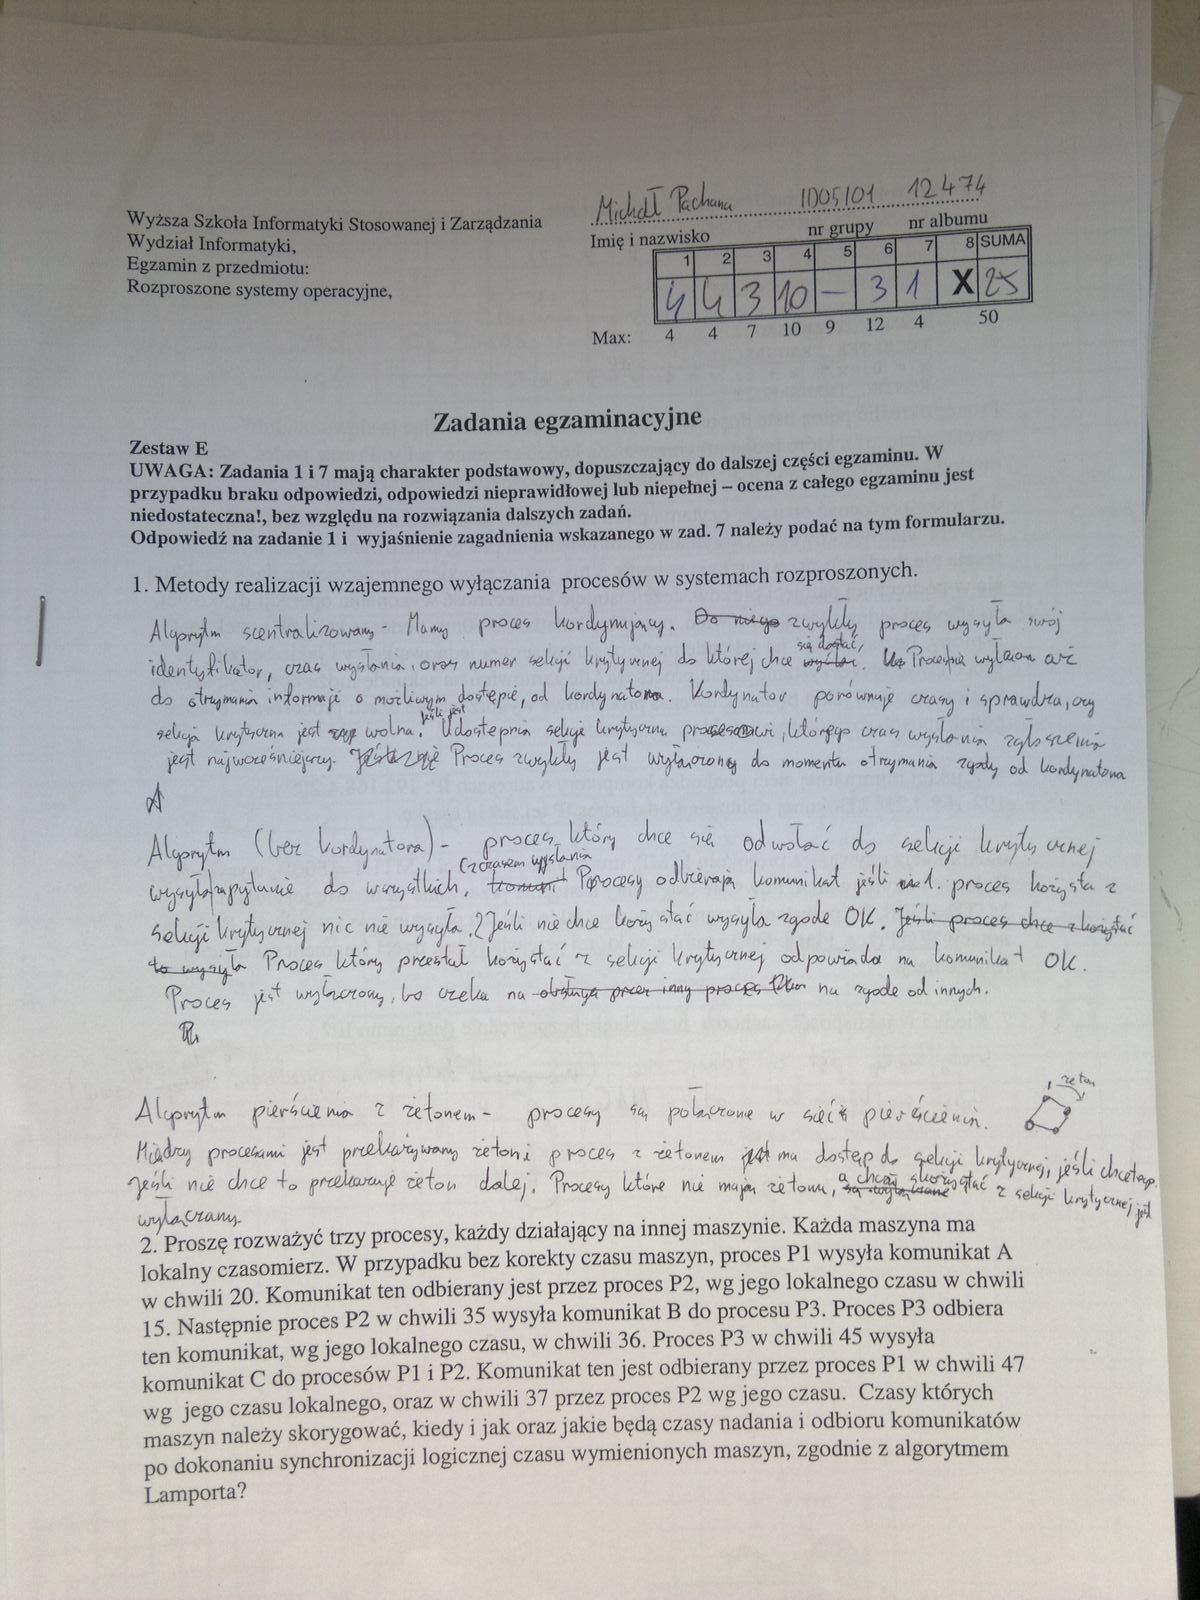 Michał Pachana ID05/01 12474
Wyższa Szkoła Informatyki Stosowanej i Zarządzania
Wydział Informatyki,
Egzamin z przedmiotu:
Rozproszone systemy operacyjne,
Imię i nazwisko nr grupy nr albumu
1 2 3 4 5 6 7 8 SUMA
4 4 3 10 – 3 1 X 25
Max: 4 4 7 10 9 12 4 50
Zadania egzaminacyjne
Zestaw E
UWAGA: Zadania 1 i 7 mają charakter podstawowy, dopuszczający do dalszej części egzaminu. W
przypadku braku odpowiedzi, odpowiedzi nieprawidłowej lub niepełnej – ocena z całego egzaminu jest
niedostateczna!, bez względu na rozwiązania dalszych zadań.
Odpowiedź na zadanie 1 i wyjaśnienie zagadnienia wskazanego w zad. 7 należy podać na tym formularzu.
1. Metody realizacji wzajemnego wyłączania procesów w systemach rozproszonych.
Algorytm scentralizowany - Mamy proces kordynujący. Do niego zwykły proces wysyła swój
identyfikator, czas wysłania, oraz numer sekcji krytycznej do której chce się dostać,
do otrzymania informacji o możliwym dostępie, od kordynatora. Kordynator porównuje czasy i sprawdza, czy
sekcja krytyczna jest wolna. Jeśli jest Udostępnia sekcje krytyczną procesowi, którego czas wysłania zgłoszenia
jest najwcześniejszy. Proces zwykły jest wyłączony do momentu otrzymania zgody od kordynatora
Algorytm (bez kordynatora) - proces, który chce się odwołać do sekcji krytycznej
(z czasem wysłania
wysyła zapytanie do wszystkich, Procesy odbierają komunikat jeśli 1. proces korzysta z
sekcji krytycznej nic nie wysyła. 2 Jeśli nie chce korzystać wysyła zgode OK. Jeśli proces chce skorzystać
to wysyła Proces który przestał korzystać z sekcji krytycznej odpowiada na komunikat OK.
Proces jest wyłączony, bo czeka na na zgode od innych.
żeton
Algorytm pierścienia z żetonem - procesy są połączone w sieć pierścienia.
Między procesami jest przekazywany żeton i proces z żetonem ma dostęp do sekcji krytycznej, jeśli chce
Jeśli nie chce to przekazuje żeton dalej. Procesy które nie mają żetonu, a chcą skorzystać z sekcji krytycznej jest
wyłączany
2. Proszę rozważyć trzy procesy, każdy działający na innej maszynie. Każda maszyna ma
lokalny czasomierz. W przypadku bez korekty czasu maszyn, proces P1 wysyła komunikat A
w chwili 20. Komunikat ten odbierany jest przez proces P2, wg jego lokalnego czasu w chwili
15. Następnie proces P2 w chwili 35 wysyła komunikat B do procesu P3. Proces P3 odbiera
ten komunikat, wg jego lokalnego czasu, w chwili 36. Proces P3 w chwili 45 wysyła
komunikat C do procesów P1 i P2. Komunikat ten jest odbierany przez proces P1 w chwili 47
wg jego czasu lokalnego, oraz w chwili 37 przez proces P2 wg jego czasu. Czasy których
maszyn należy skorygować, kiedy i jak oraz jakie będą czasy nadania i odbioru komunikatów
po dokonaniu synchronizacji logicznej czasu wymienionych maszyn, zgodnie z algorytmem
Lamporta?